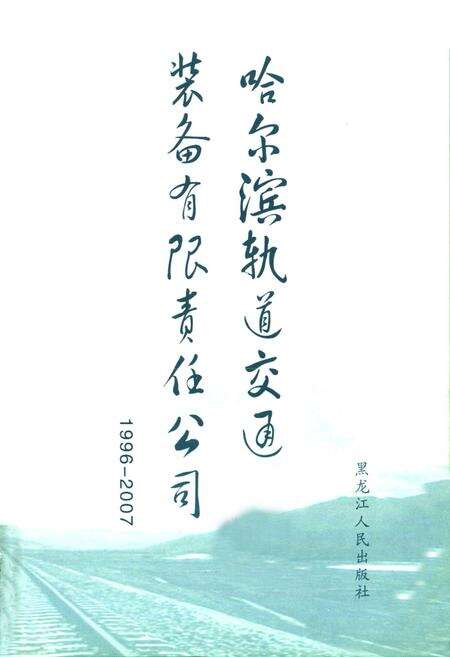 哈尔滨轨道交通
装备有限责任公司
1996-2007
黑龙江人民出版社